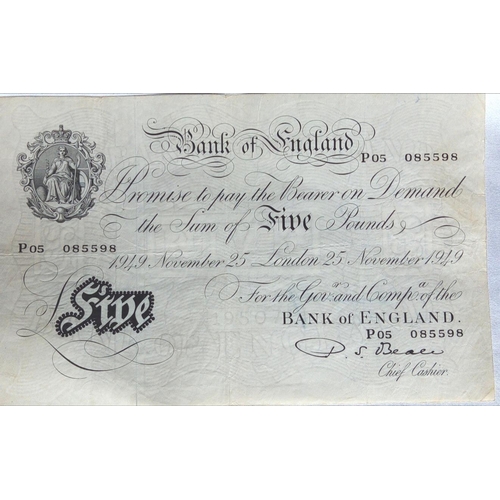 Bank of England
P05 085598
I Promise to pay the Bearer on Demand
the Sum of Five Pounds
P05 085598
1949 November 25 London 25 November 1949
For the Gov.r and Comp.a of the
BANK of ENGLAND.
£Five
P05 085598
P. S. Beale
Chief Cashier.